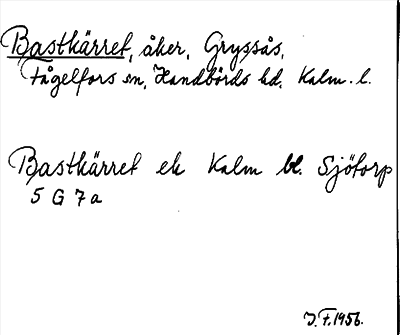 Bastkärret, åker, Gryssås,
Fågelfors sn, Handbörds hd, Kalm. l.
Bastkärret ek Kalm bl. Sjötorp
5 G 7 a
J. F. 1956.